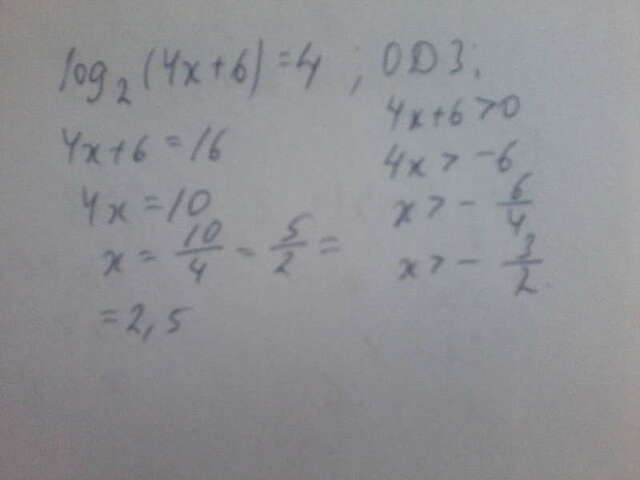 log₂(4x+6)=4 ; ОДЗ:
4x+6=16
4x=10
x = 10/4 = 5/2 =
= 2,5
4x+6>0
4x > -6
x > - 6/4
x > - 3/2